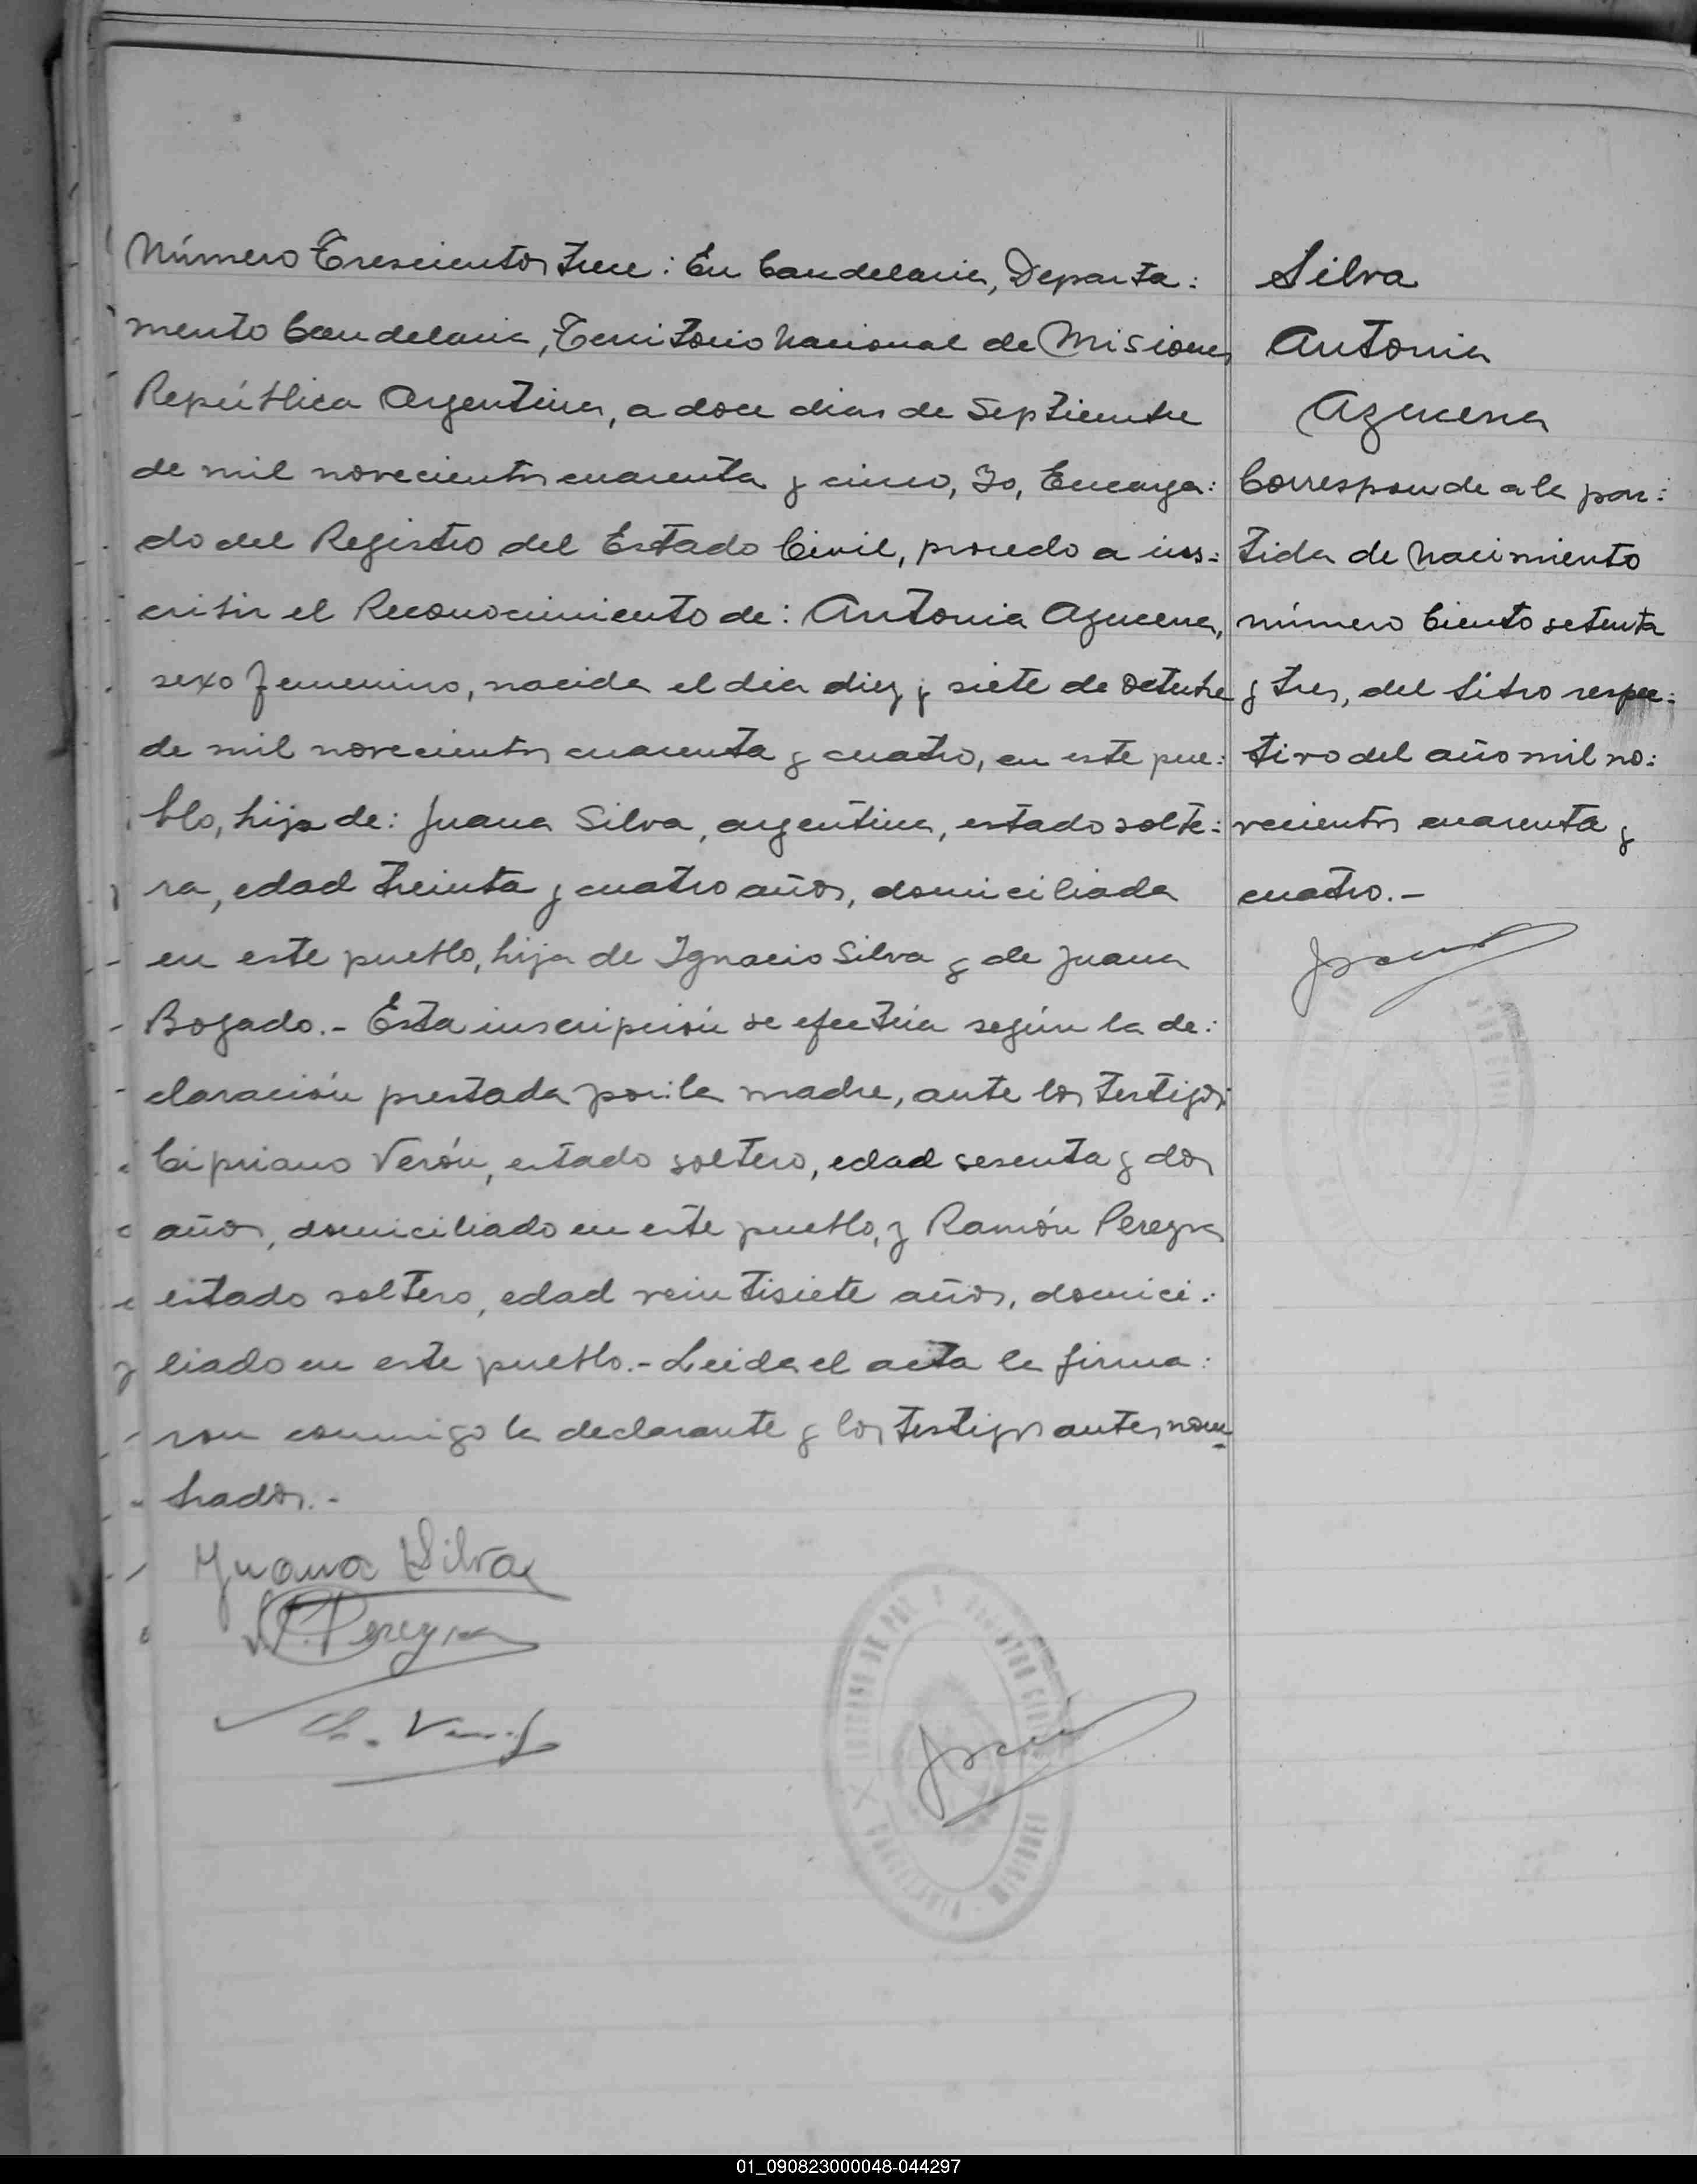 Número Trescientos trece: En Candelaria, Departa:
mento Candelaria, Territorio Nacional de Misiones
República Argentina, a doce dias de Septiembre
de mil novecientos cuarenta y cinco, Yo, Encarga:
do del Registro del Estado Civil, procedo a ins:
cribir el Reconocimiento de: Antonia Azucena,
sexo femenino, nacida el dia diez y siete de octubre
de mil novecientos cuarenta y cuatro, en este pue:
blo, hija de: Juana Silva, argentina, estado solte:
ra, edad treinta y cuatro años, domiciliada
en este pueblo, hija de Ignacio Silva y de Juana
Bogado.- Esta inscripción se efectúa según la de:
claración prestada por la madre, ante los testigos:
Cipriano Verón, estado soltero, edad sesenta y dos
años, domiciliado en este pueblo, y Ramón Pereyra
estado soltero, edad veintisiete años, domici:
liado en este pueblo.- Leida el acta la firma:
ron conmigo la declarante y los testigos antes nom
brados.-
Juana Silva
R. Pereyra
Silva
Antonia
Azucena
Corresponde a la par:
tida de Nacimiento
número Ciento setenta
y tres, del libro respec:
tivo del año mil no:
vecientos cuarenta y
cuatro.-
01_090823000048-044297